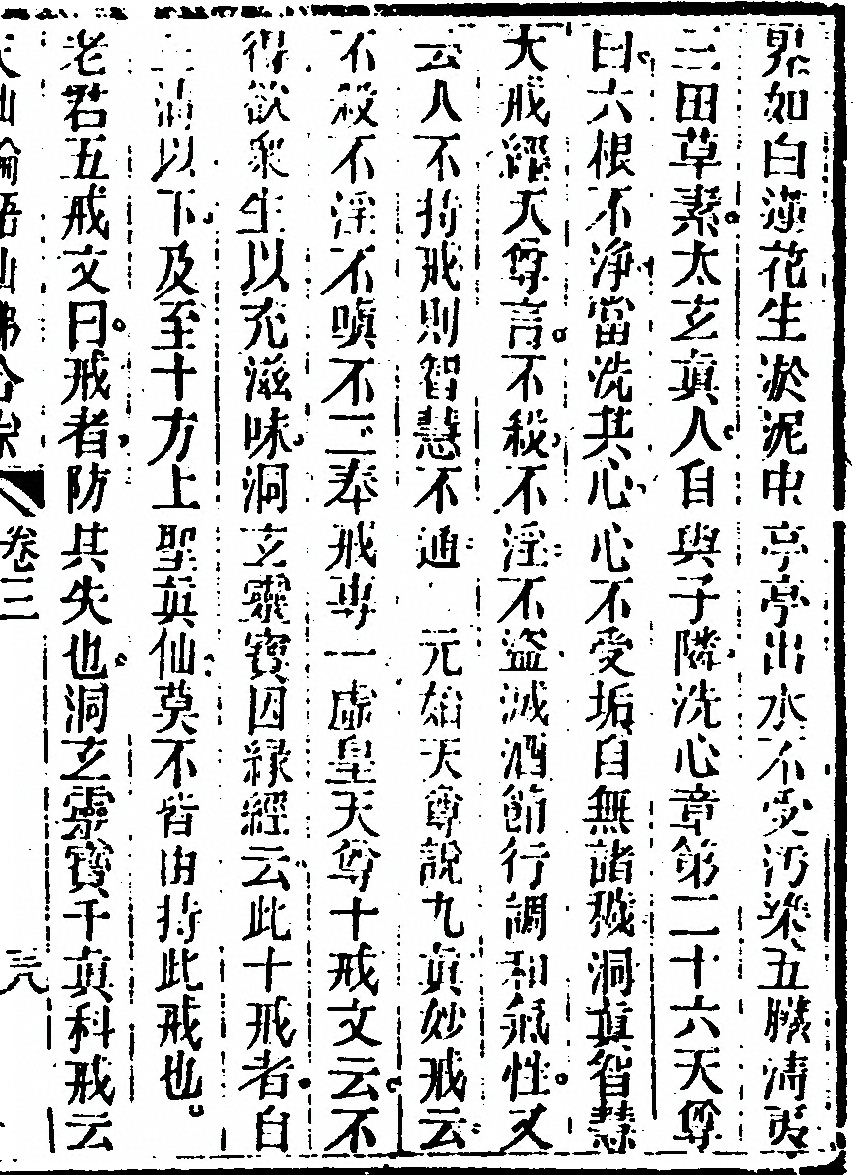 界如白蓮花生淤泥中亭亭出水不受汚染五臟淸夷
三田草素太玄眞人自與子隣洗心章第二十六天尊
曰六根不淨當洗其心心不受垢自無諸穢洞眞智慧
大戒經天尊言不殺不淫不盜滅酒節行調和氣性又
云人不持戒則智慧不通 元始天尊說九眞妙戒云
不殺不淫不嗔不二奉戒專一虛皇天尊十戒文云不
得欲衆生以充滋味洞玄靈寶因緣經云此十戒者自
三淸以下及至十方上聖眞仙莫不皆由持此戒也
老君五戒文曰戒者防其失也洞玄靈寶千眞科戒云
天仙論語仙佛合宗 卷三